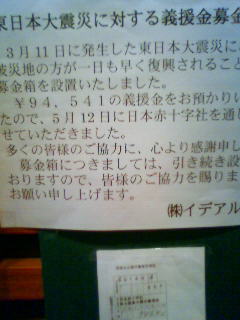 東日本大震災に対する義援金募金
３月11日に発生した東日本大震災に
被災地の方が一日も早く復興されること
募金箱を設置いたしました。
￥９４，５４１の義援金をお預かりい
たので、５月12日に日本赤十字社を通し
せていただきました。
多くの皆様のご協力に、心より感謝申し
募金箱につきましては、引き続き設
おりますので、皆様のご協力を賜りま
お願い申し上げます。
㈱イデアル